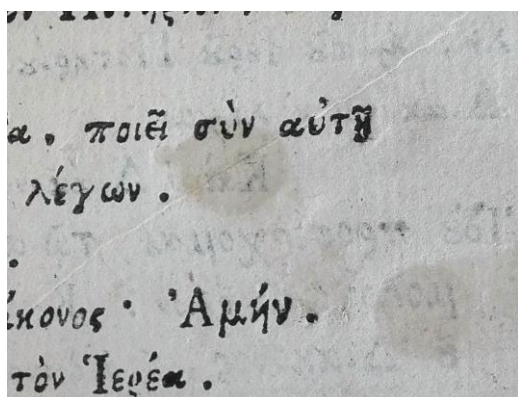 α, ποιεῖ σὺν αὐτῷ
λέγων.
.
άκονος· Ἀμήν.
τὸν Ἱερέα.